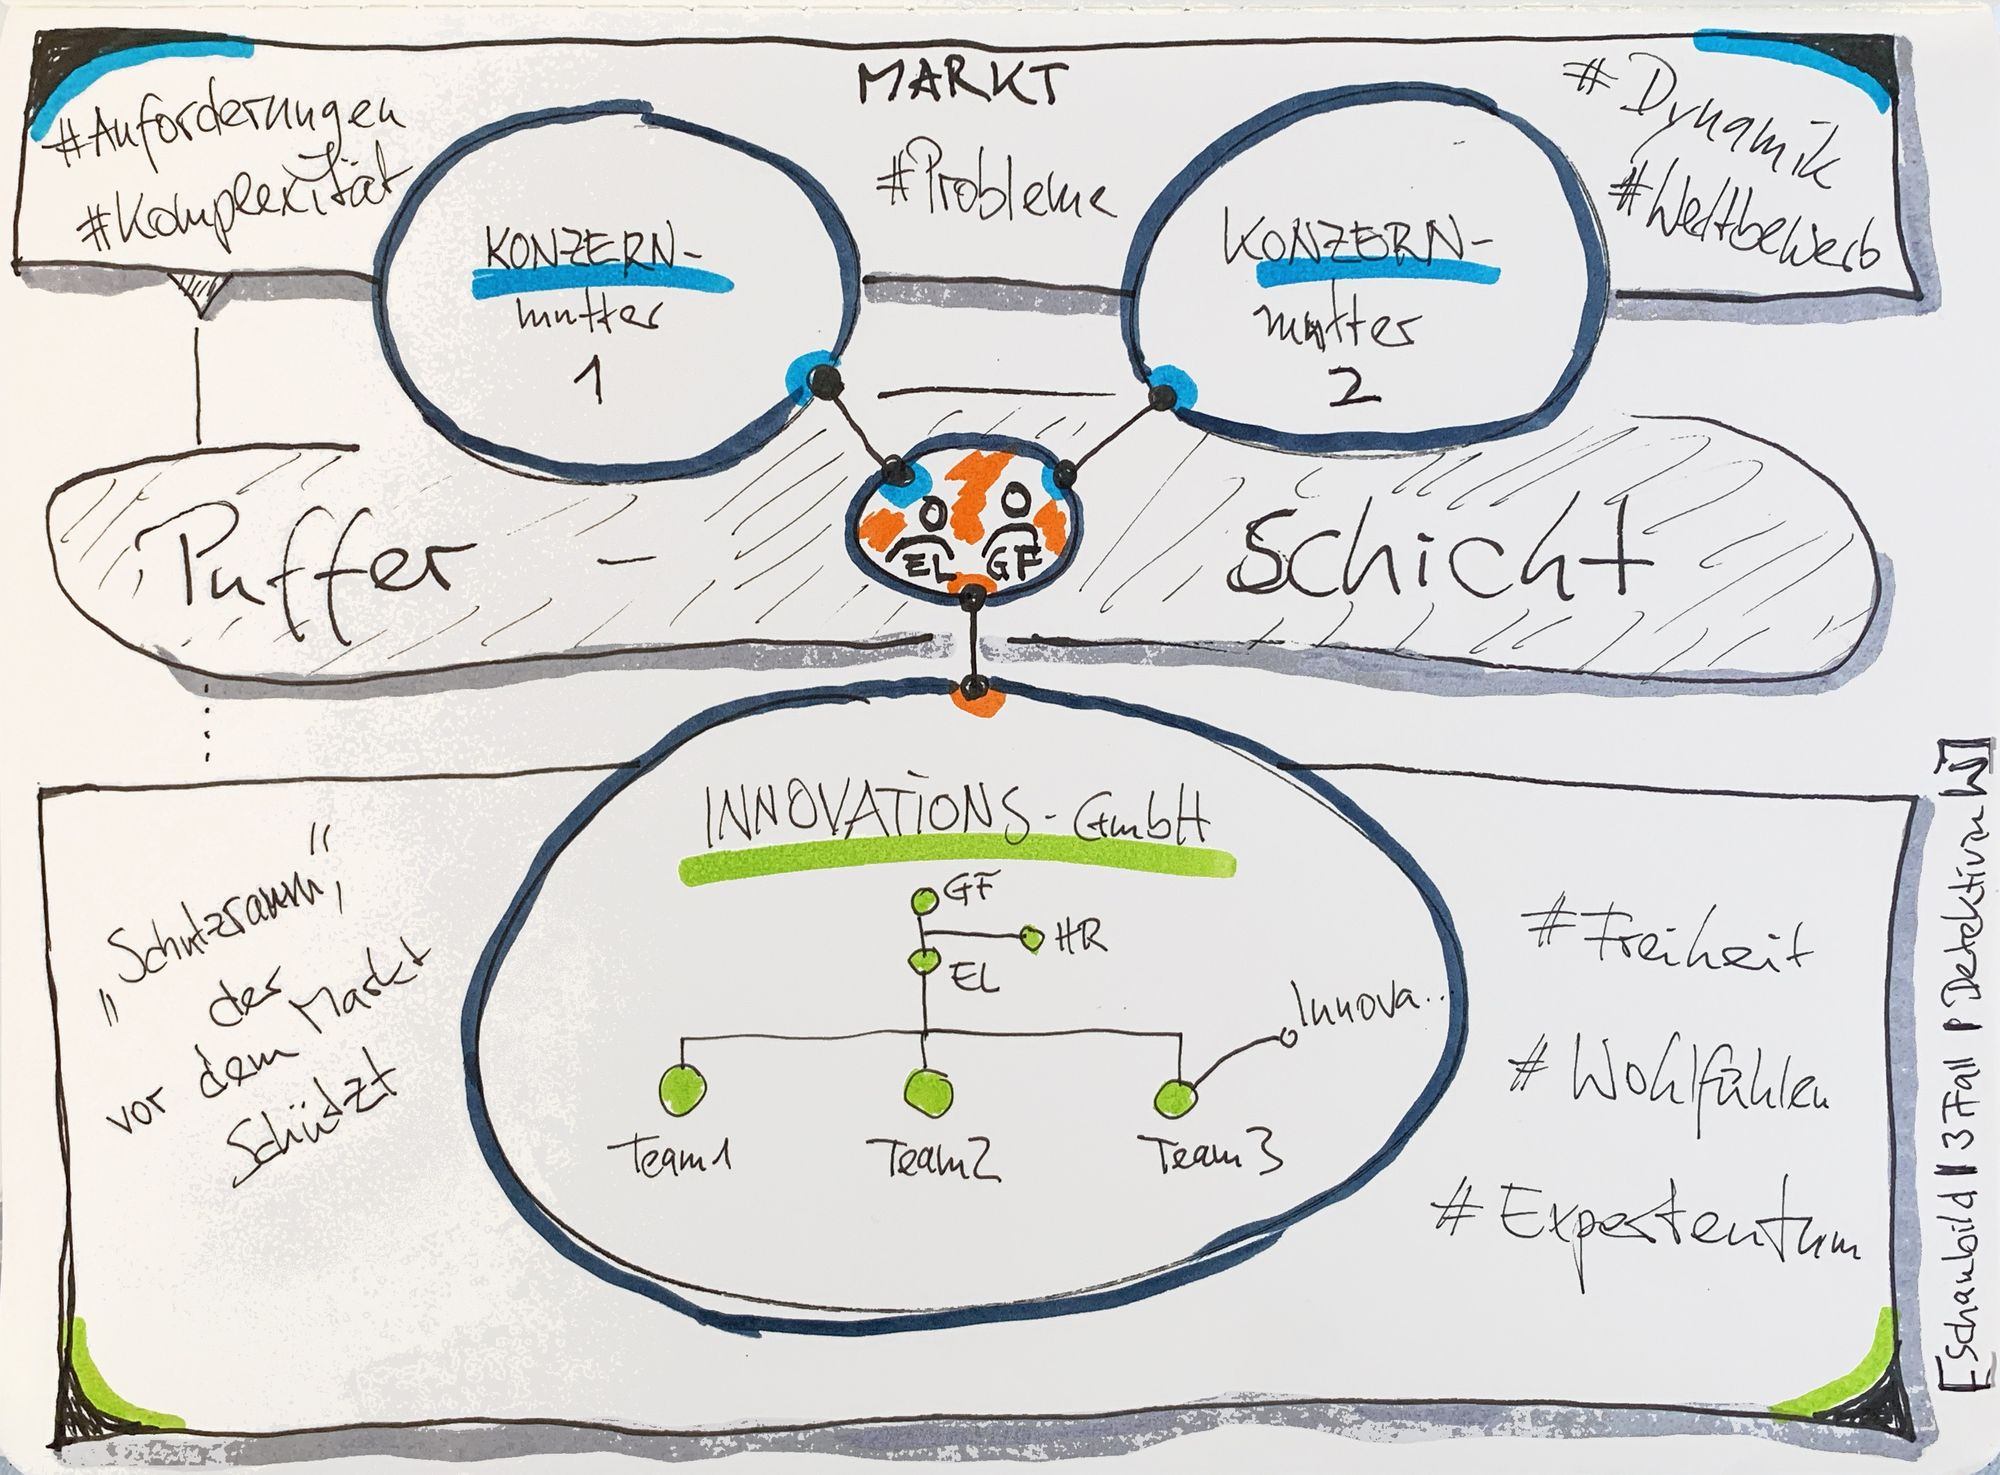 MARKT
#Anforderungen
#Komplexität
#Probleme
#Dynamik
#Wettbewerb
KONZERN-
mutter
1
KONZERN-
mutter
2
Puffer - Schicht
EL GF
INNOVATIONS-GmbH
GF
HR
EL
Innova..
Team1
Team2
Team3
"Schutzraum",
der
vor dem Markt
Schützt
#Freiheit
#Wohlfühlen
#Expertentum
[Schaubild || 3 Fall |